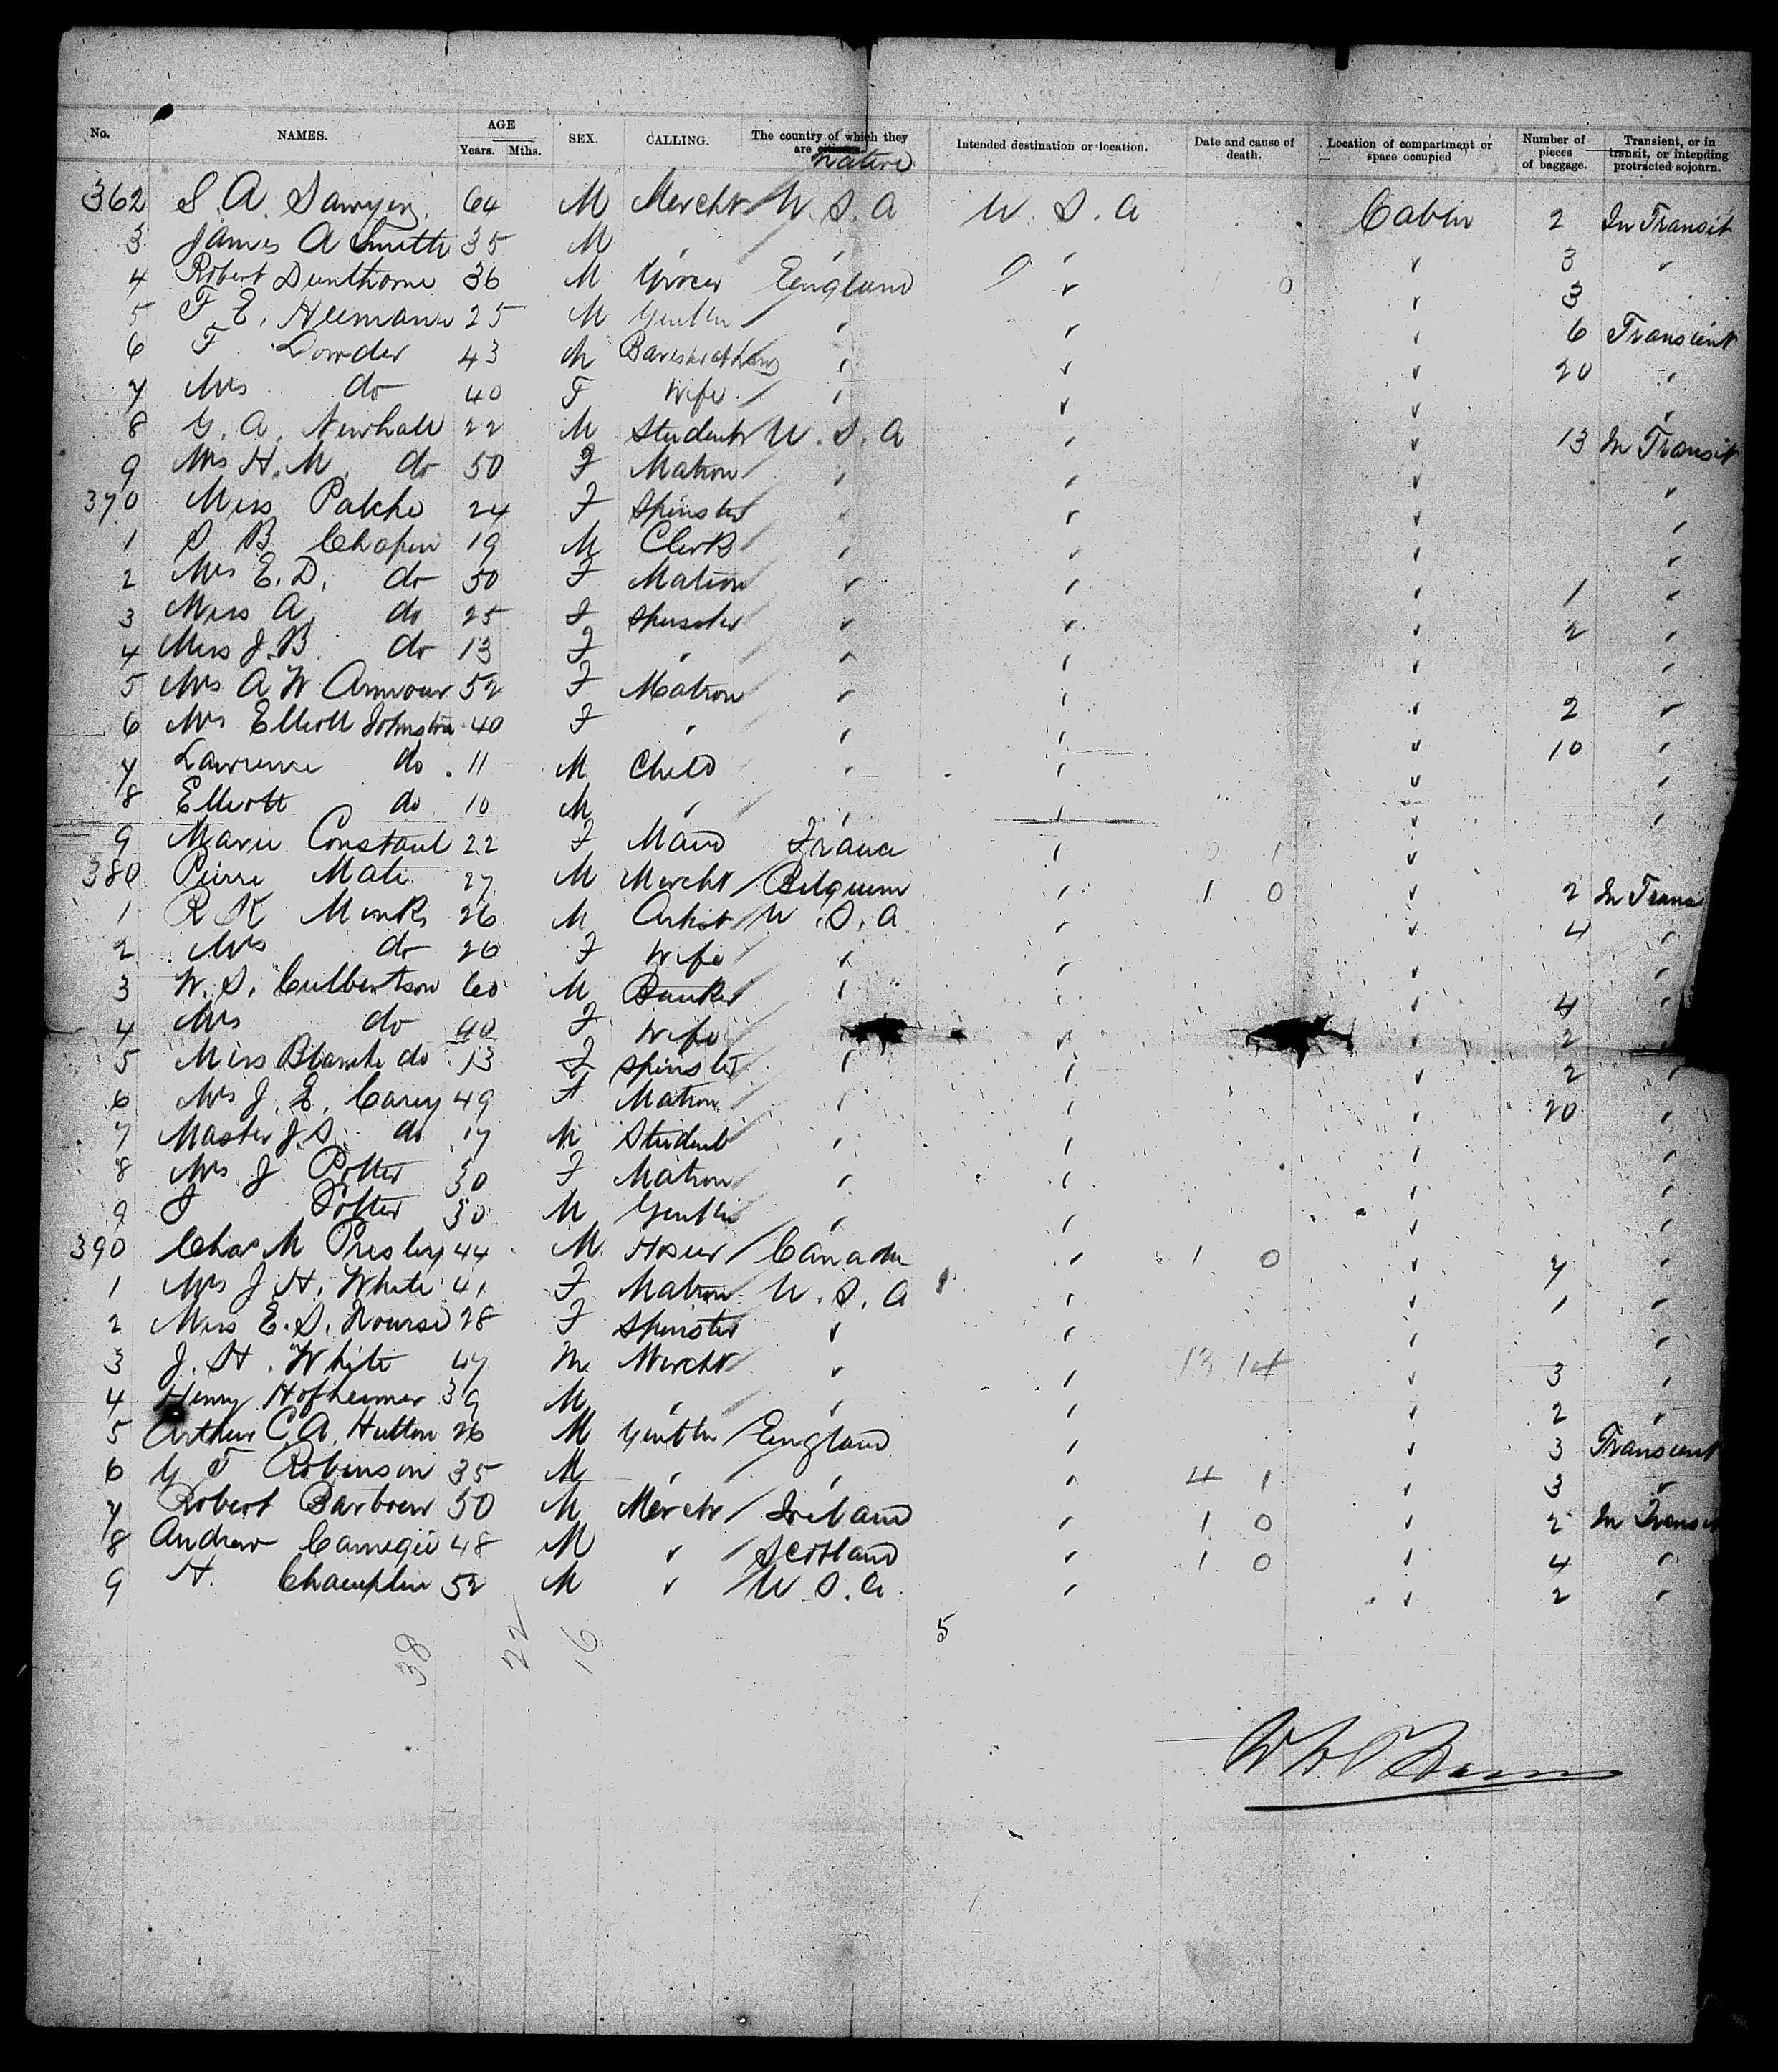 No. NAMES. AGE Years. Mths. SEX. CALLING. The country of which they are citizens. Native Intended destination or location. Date and cause of death. Location of compartment or space occupied Number of pieces of baggage. Transient, or in transit, or intending protracted sojourn.
362 S. A. Sawyer 64 M Mercht U. S. A U. S. A Cabin 2 In Transit
3 James A Smith 35 M " " " " 3 "
4 Robert Dunthorne 36 M Grocer England " 0 " 3
5 F. E. Heemann 25 M Gentln " " " 6 Transient
6 F Lowder 43 M Barister at Law " " " 20 "
7 Mrs do 40 F Wife " " " "
8 G. A. Newhall 22 M Student U. S. A " " 13 In Transit
9 Mrs H. M. do 50 F Matron " " " "
370 Miss Patche 24 F Spinster " " " "
1 S B Chapin 19 M Clerk " " " "
2 Mrs E. D. do 50 F Matron " " " 1 "
3 Miss A. do 25 F Spinster " " " 2 "
4 Miss J. B. do 13 F " " " " "
5 Mrs A W Armour 52 F Matron " " " 2 "
6 Mrs Elliott Johnston 40 F " " " " 10 "
7 Lawrence do 11 M Child " " " "
8 Elliott do 10 M " " " " "
9 Marie Constant 22 F Maid France " 1 "
380 Pierre Mati 27 M Mercht Belgium " 1 0 " 2 In Trans
1 R K Minks 26 M Artist U. S. A " " 4 "
2 Mrs do 26 F Wife " " " "
3 W. S. Culbertson 60 M Banker " " " 4 "
4 Mrs do 40 F Wife " " 2
5 Miss Blanche do 13 F Spinster " " " 2 "
6 Mrs J. E. Carey 49 F Matron " " " 20 "
7 Master J. S. do 17 M Student " " " "
8 Mrs J Potter 30 F Matron " " " "
9 J Potter 30 M Gentln " " " "
390 Chas M Presley 44 M Hosier Canada " 1 0 " 7 "
1 Mrs J. H. White 41 F Matron U. S. A " " 1 "
2 Miss E. S. Nourse 28 F Spinster " " " "
3 J. H. White 47 M Mercht " " 13 14 " 3 "
4 Henry Hofheimer 39 M " " " " 2 "
5 Arthur C. A. Hutton 26 M Gentln England " " 3 Transient
6 G F Robinson 35 M " " " 4 1 " 3 "
7 Robert Barbour 50 M Mercht Ireland " 1 0 " 2 In Transit
8 Andrew Carnegie 48 M " Scotland " 1 0 " 4 "
9 H. Champlin 52 M " U. S. A. " " 2 "
38 22 16 5